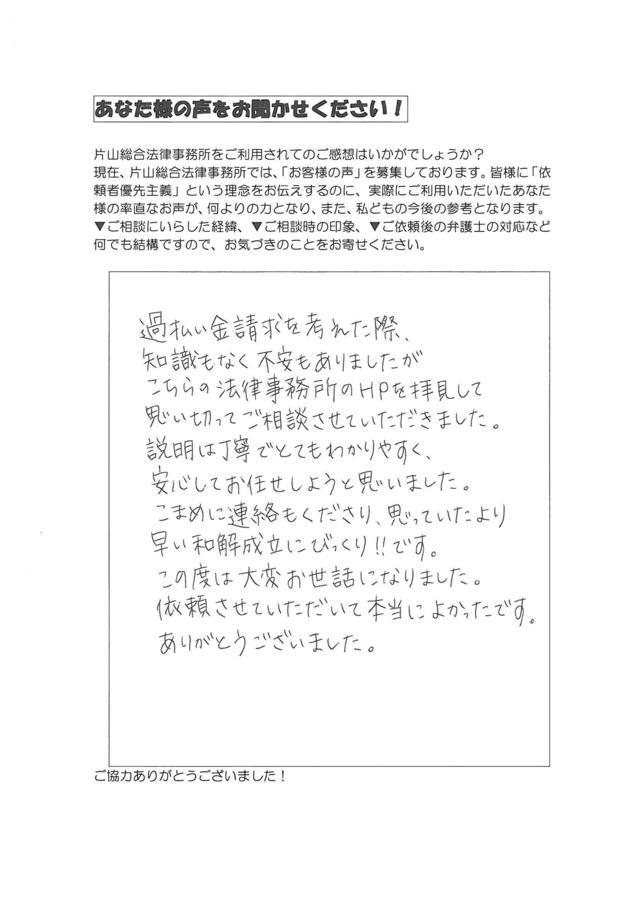 あなた様の声をお聞かせください！
片山総合法律事務所をご利用されてのご感想はいかがでしょうか？
現在、片山総合法律事務所では、「お客様の声」を募集しております。皆様に「依
頼者優先主義」という理念をお伝えするのに、実際にご利用いただいたあなた
様の率直なお声が、何よりの力となり、また、私どもの今後の参考となります。
▼ご相談にいらした経緯、▼ご相談時の印象、▼ご依頼後の弁護士の対応など
何でも結構ですので、お気づきのことをお寄せください。
過払い金請求を考えた際、
知識もなく不安もありましたが
こちらの法律事務所のHPを拝見して
思い切ってご相談させていただきました。
説明は丁寧でとてもわかりやすく、
安心してお任せしようと思いました。
こまめに連絡もくださり、思っていたより
早い和解成立にびっくり!!です。
この度は大変お世話になりました。
依頼させていただいて本当によかったです。
ありがとうございました。
ご協力ありがとうございました！